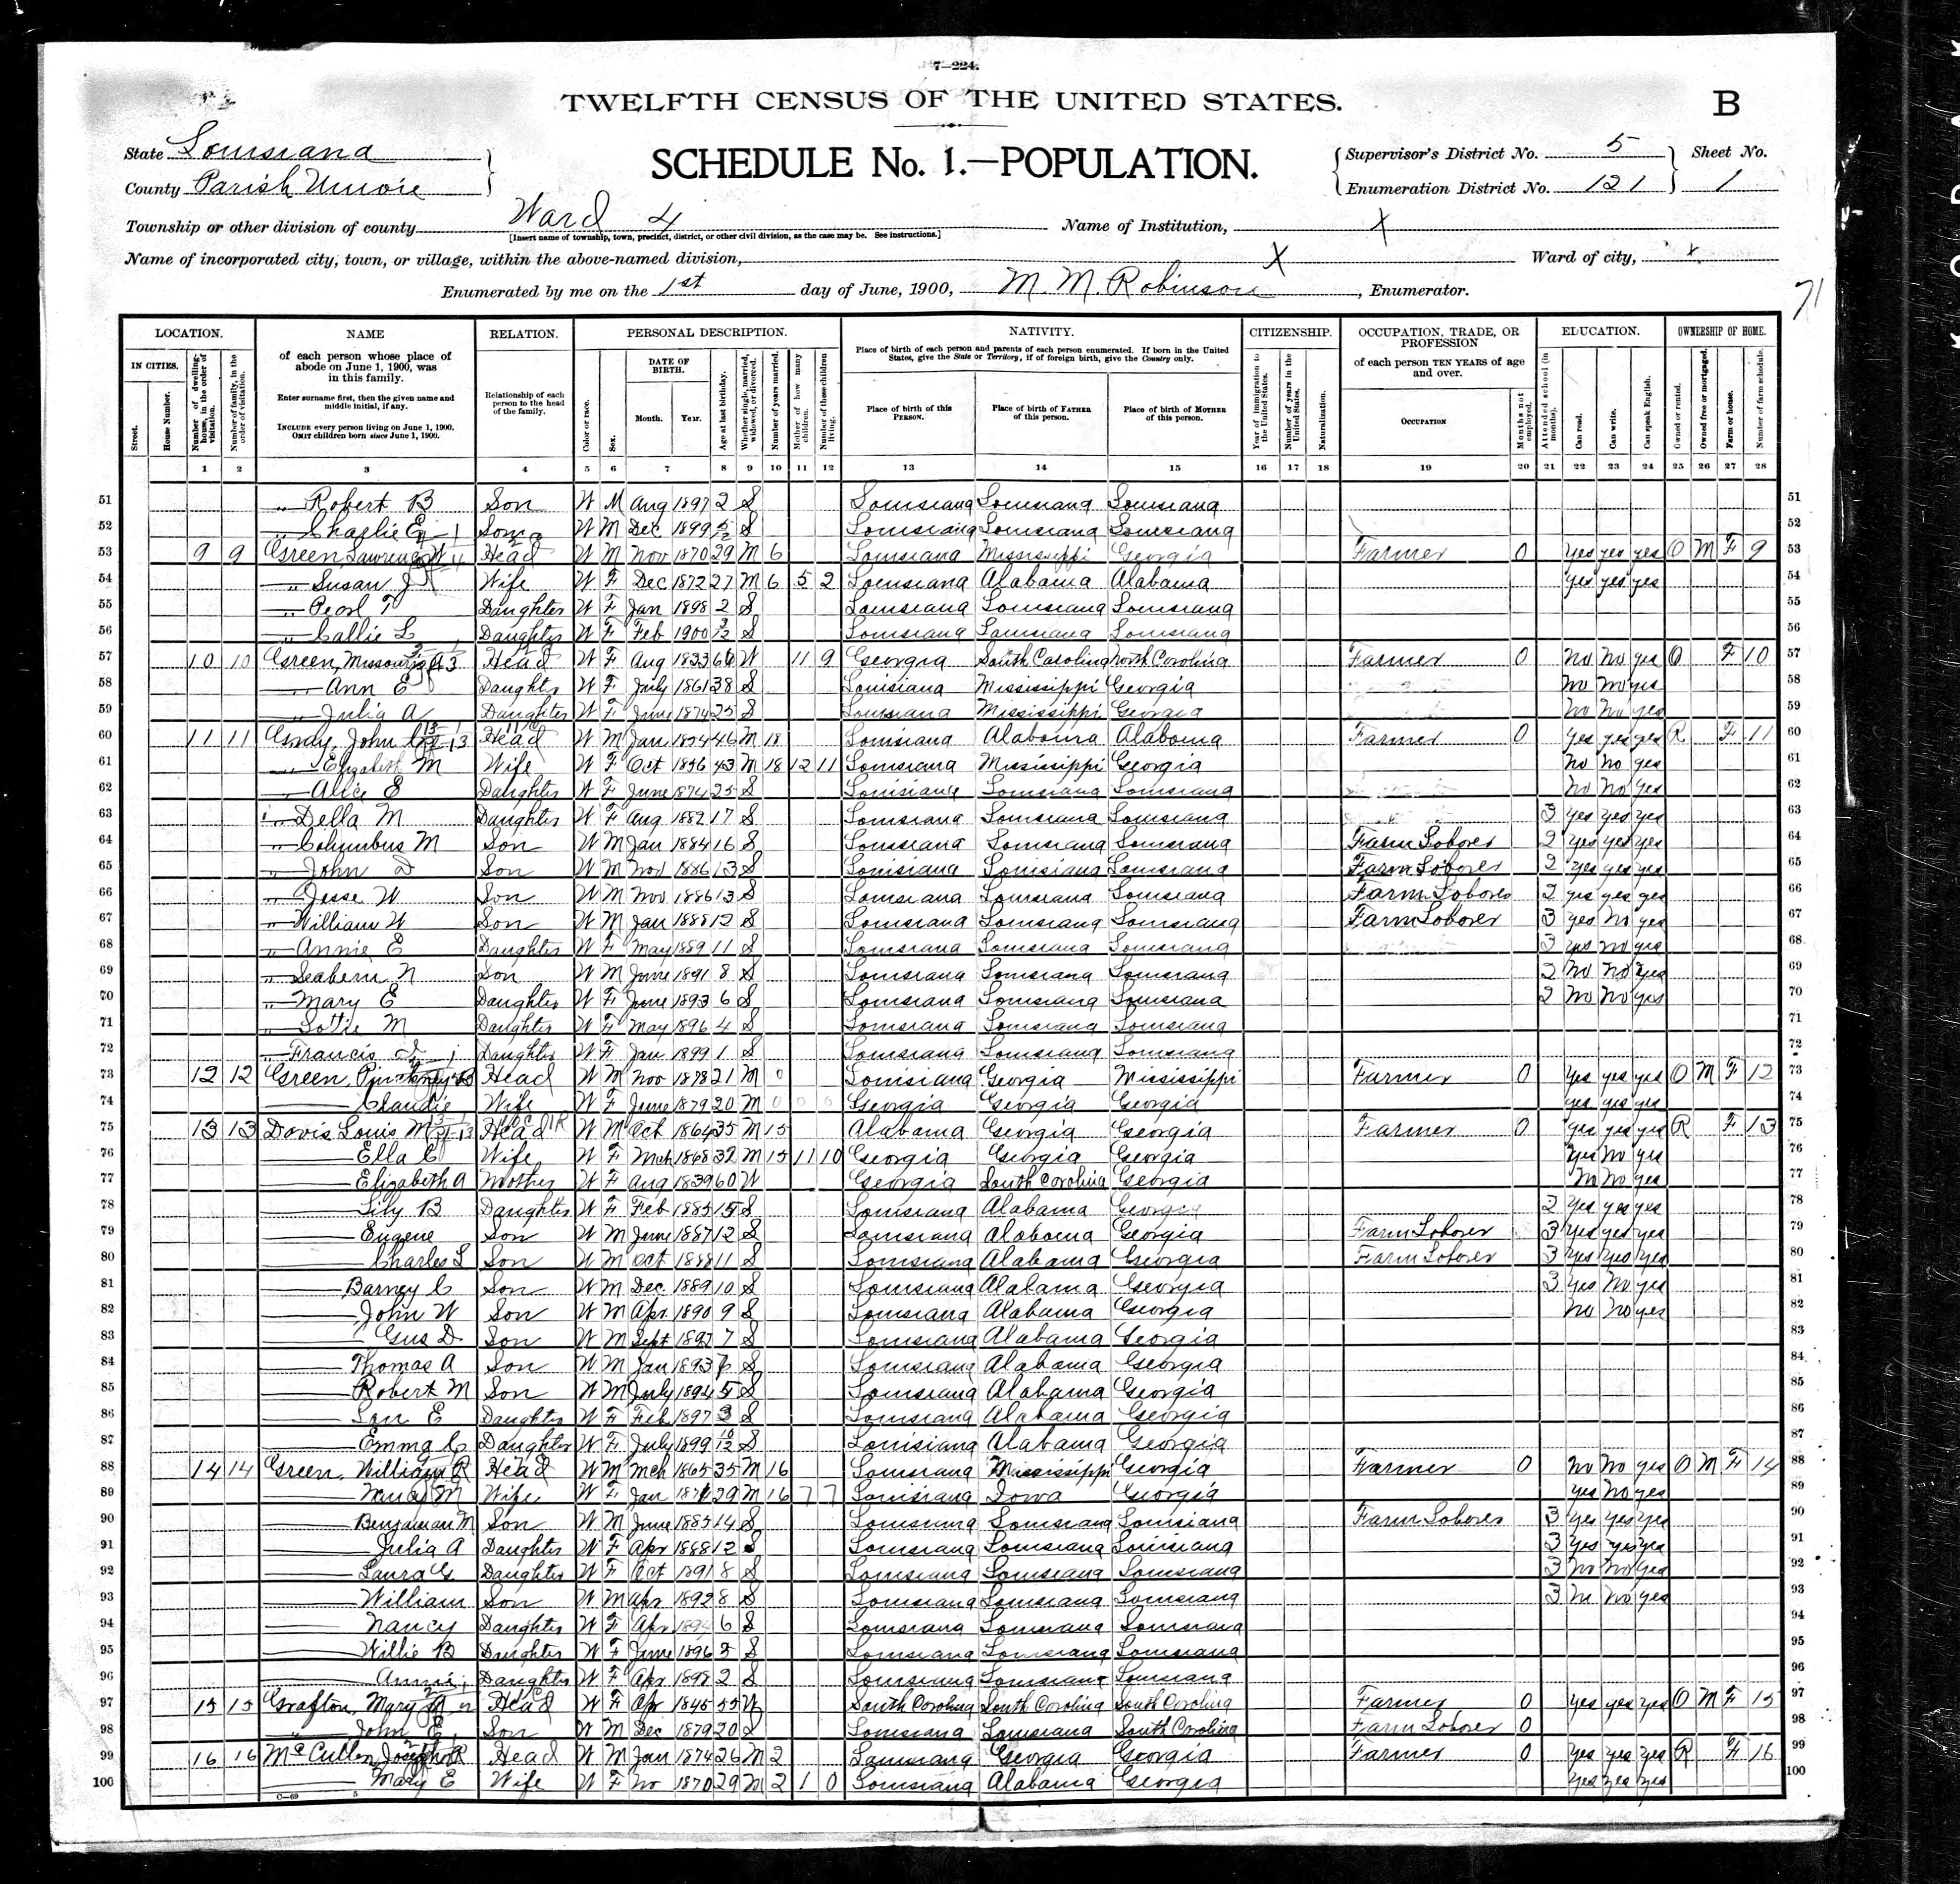 7-224.
TWELFTH CENSUS OF THE UNITED STATES.
B
State Louisiana
County Parish Union
SCHEDULE No. 1.—POPULATION.
Supervisor's District No. 5
Enumeration District No. 121
Sheet No.
1
Township or other division of county Ward 4
[Insert name of township, town, precinct, district, or other civil division, as the case may be. See instructions.]
Name of Institution, X
Name of incorporated city, town, or village, within the above-named division, X
Ward of city, x
Enumerated by me on the 1st day of June, 1900, M. M. Robinson, Enumerator.
71
LOCATION. NAME RELATION. PERSONAL DESCRIPTION. NATIVITY. CITIZENSHIP. OCCUPATION, TRADE, OR PROFESSION EDUCATION. OWNERSHIP OF HOME.
IN CITIES. Street. House Number. Number of dwelling-house, in the order of visitation. Number of family, in the order of visitation.
of each person whose place of abode on June 1, 1900, was in this family.
Enter surname first, then the given name and middle initial, if any.
INCLUDE every person living on June 1, 1900. OMIT children born since June 1, 1900.
Relationship of each person to the head of the family.
Color or race. Sex. DATE OF BIRTH. Month. Year. Age at last birthday. Whether single, married, widowed, or divorced. Number of years married. Mother of how many children. Number of these children living.
Place of birth of each person and parents of each person enumerated. If born in the United States, give the State or Territory; if of foreign birth, give the Country only.
Place of birth of this PERSON. Place of birth of FATHER of this person. Place of birth of MOTHER of this person.
Year of immigration to the United States. Number of years in the United States. Naturalization.
of each person TEN YEARS of age and over.
OCCUPATION Months not employed.
Attended school (in months). Can read. Can write. Can speak English.
Owned or rented. Owned free or mortgaged. Farm or house. Number of farm schedule.
1 2 3 4 5 6 7 8 9 10 11 12 13 14 15 16 17 18 19 20 21 22 23 24 25 26 27 28
51 " Robert B Son W M Aug 1897 2 S Louisiana Louisiana Louisiana 51
52 " Charlie E Son W M Dec 1899 5/12 S Louisiana Louisiana Louisiana 52
53 9 9 Green, Lawrence W Head W M Nov 1870 29 M 6 Louisiana Mississippi Georgia Farmer 0 yes yes yes O M F 9 53
54 " Susan J Wife W F Dec 1872 27 M 6 5 2 Louisiana Alabama Alabama yes yes yes 54
55 " Pearl T Daughter W F Jan 1898 2 S Louisiana Louisiana Louisiana 55
56 " Callie L Daughter W F Feb 1900 3/12 S Louisiana Louisiana Louisiana 56
57 10 10 Green, Missouri A Head W F Aug 1833 66 W 11 9 Georgia South Carolina North Carolina Farmer 0 No No yes O F 10 57
58 " Ann E Daughter W F July 1861 38 S Louisiana Mississippi Georgia No No yes 58
59 " Julia A Daughter W F June 1874 25 S Louisiana Mississippi Georgia No No yes 59
60 11 11 Gray, John C Head W M Jan 1854 46 M 18 Louisiana Alabama Alabama Farmer 0 yes yes yes R F 11 60
61 " Elizabeth M Wife W F Oct 1856 43 M 18 12 11 Louisiana Mississippi Georgia No No yes 61
62 " Alice E Daughter W F June 1874 25 S Louisiana Louisiana Louisiana No No yes 62
63 " Della M Daughter W F Aug 1882 17 S Louisiana Louisiana Louisiana 3 yes yes yes 63
64 " Columbus M Son W M Jan 1884 16 S Louisiana Louisiana Louisiana Farm Laborer 2 yes yes yes 64
65 " John D Son W M Nov 1886 13 S Louisiana Louisiana Louisiana Farm Laborer 2 yes yes yes 65
66 " Jesse W Son W M Nov 1886 13 S Louisiana Louisiana Louisiana Farm Laborer 2 yes yes yes 66
67 " William W Son W M Jan 1888 12 S Louisiana Louisiana Louisiana Farm Laborer 3 yes No yes 67
68 " Annie E Daughter W F May 1889 11 S Louisiana Louisiana Louisiana 3 yes no yes 68
69 " Seabern N Son W M June 1891 8 S Louisiana Louisiana Louisiana 2 No No yes 69
70 " Mary E Daughter W F June 1893 6 S Louisiana Louisiana Louisiana 2 No No yes 70
71 " Lottie M Daughter W F May 1896 4 S Louisiana Louisiana Louisiana 71
72 " Francis I Daughter W F Jan 1899 1 S Louisiana Louisiana Louisiana 72
73 12 12 Green, Pinckney Head W M Nov 1878 21 M 0 Louisiana Georgia Mississippi Farmer 0 yes yes yes O M F 12 73
74 Claudie Wife W F June 1879 20 M 0 0 0 Georgia Georgia Georgia yes yes yes 74
75 13 13 Davis Louis M Head W M Oct 1864 35 M 15 Alabama Georgia Georgia Farmer 0 yes yes yes R F 13 75
76 Ella C Wife W F Mch 1868 32 M 15 11 10 Georgia Georgia Georgia yes No yes 76
77 Elizabeth A Mother W F Aug 1839 60 W Georgia South Carolina Georgia No No yes 77
78 Lily B Daughter W F Feb 1885 15 S Louisiana Alabama Georgia 2 yes yes yes 78
79 Eugene Son W M June 1887 12 S Louisiana Alabama Georgia Farm Laborer 3 yes yes yes 79
80 Charles L Son W M Oct 1888 11 S Louisiana Alabama Georgia Farm Laborer 3 yes yes yes 80
81 Barney C Son W M Dec 1889 10 S Louisiana Alabama Georgia 3 yes No yes 81
82 John W Son W M Apr 1890 9 S Louisiana Alabama Georgia No No yes 82
83 Gus D Son W M Sept 1892 7 S Louisiana Alabama Georgia 83
84 Thomas A Son W M Jan 1893 S Louisiana Alabama Georgia 84
85 Robert M Son W M July 1894 5 S Louisiana Alabama Georgia 85
86 E Daughter W F Feb 1897 3 S Louisiana Alabama Georgia 86
87 Emma C Daughter W F July 1899 10/12 S Louisiana Alabama Georgia 87
88 14 14 Green, William R Head W M Mch 1865 35 M 16 Louisiana Mississippi Georgia Farmer 0 No No yes O M F 14 88
89 Nancy M Wife W F Jan 1871 29 M 16 7 7 Louisiana Iowa Georgia yes No yes 89
90 Benjaman M Son W M June 1885 14 S Louisiana Louisiana Louisiana Farm Laborer 3 yes yes yes 90
91 Julia A Daughter W F Apr 1888 12 S Louisiana Louisiana Louisiana 3 yes yes yes 91
92 Laura G Daughter W F Oct 1891 8 S Louisiana Louisiana Louisiana 3 No No yes 92
93 William Son W M Apr 1892 8 S Louisiana Louisiana Louisiana 3 No yes 93
94 Nancy Daughter W F Apr 1894 6 S Louisiana Louisiana Louisiana 94
95 Willie B Daughter W F June 1896 S Louisiana Louisiana Louisiana 95
96 Annie Daughter W F Apr 1898 2 S Louisiana Louisiana Louisiana 96
97 15 15 Grafton, Mary M Head W F Apr 1845 55 W South Carolina South Carolina South Carolina Farmer 0 yes yes yes O M F 15 97
98 " John E Son W M Dec 1879 20 S Louisiana Louisiana South Carolina Farm Laborer 0 98
99 16 16 McCullen Joseph R Head W M Jan 1874 26 M 2 Louisiana Georgia Georgia Farmer 0 yes yes yes R F 16 99
100 Mary E Wife W F No 1870 29 M 2 1 0 Louisiana Alabama Georgia yes yes yes 100
C-69 5